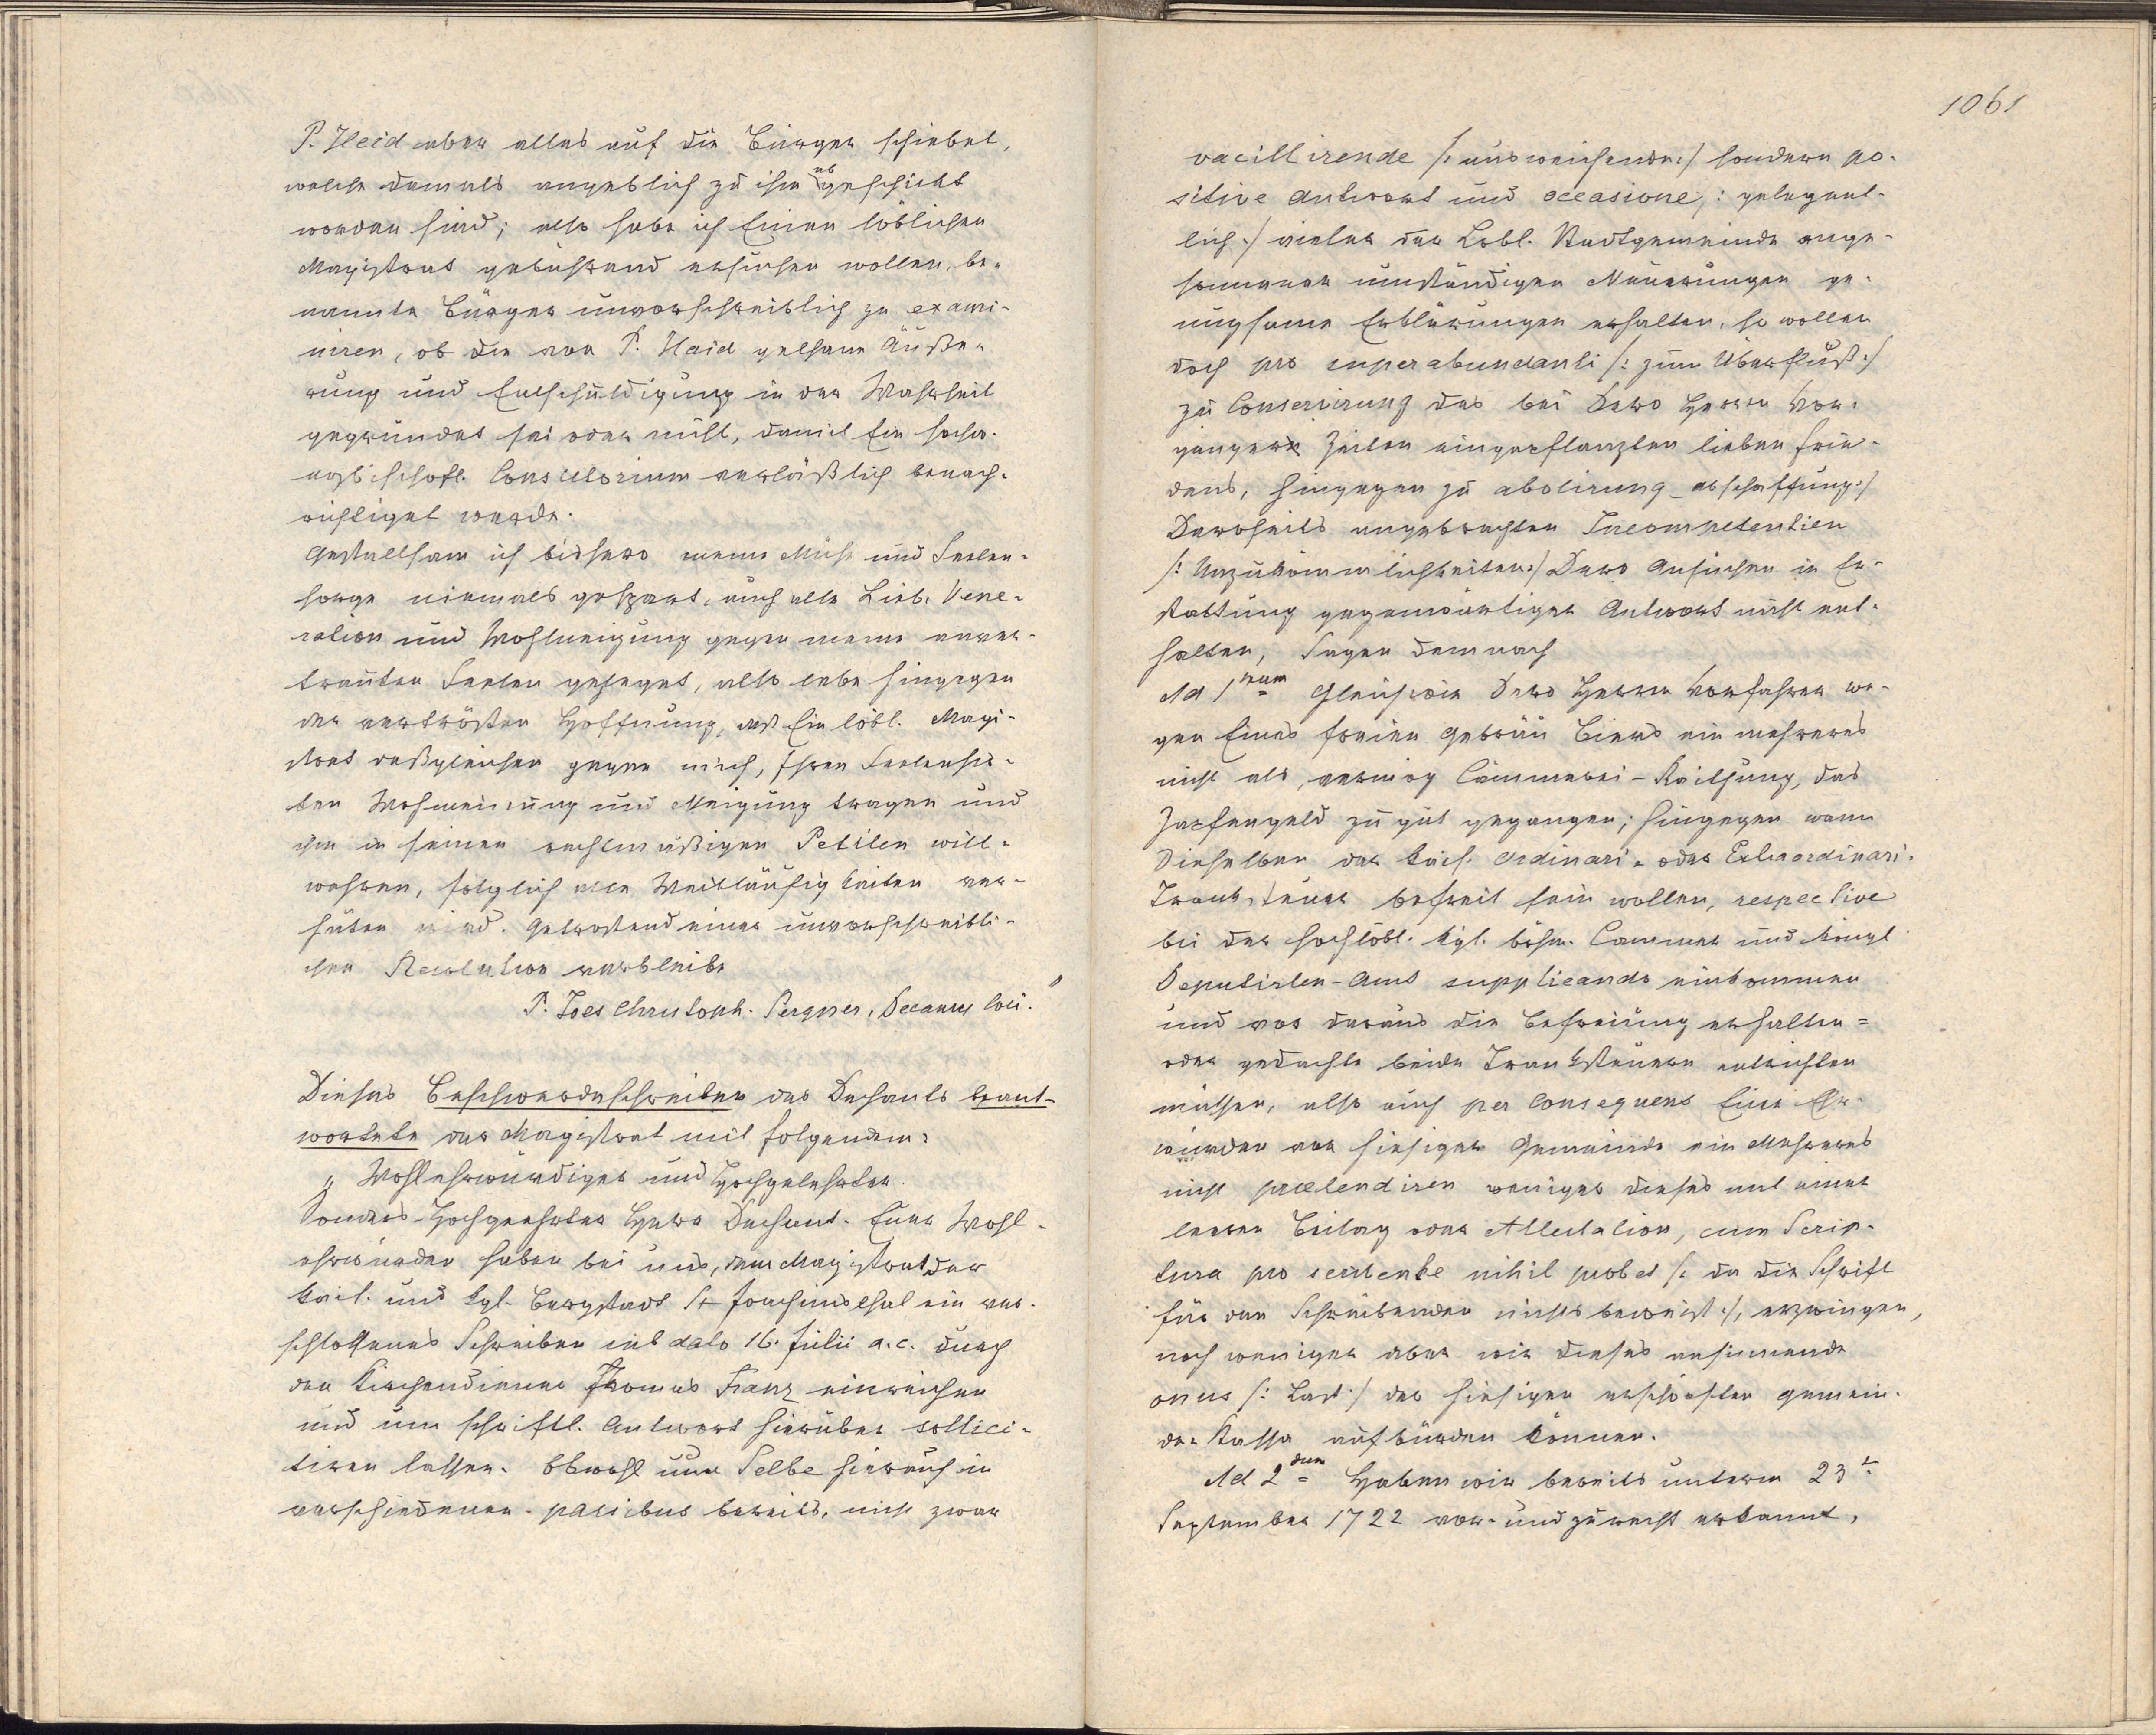 P. Heid aber alles auf die Bürger schiebet,
welche damals angeblich zu ihm abgeschickt
worden sind; also habe ich Einen löblichen
Magistrat gebührend ersuchen wollen, be-
nannte Bürger unvorschreiblich zu exami-
niren, ob die von P. Haid gethane Äuße-
rung und Entschuldigung in der Wahrheit
gegründet sei oder nicht, damit Ein hocher-
erzbischöfl. Consistorium verläßlich benach-
richtiget werde.
Gestaltsam ich bishero meine Mühe und Seelen-
sorge niemals gespart, auch alle Lieb, Vene-
ration und Wohlneigung gegen meine anver-
trauten Seelen geheget, also lebe hingegen
der vertrösten Hoffnung, daß Ein löbl. Magi-
strat deßgleichen gegen mich, Ihren Seelenhir-
ten Wohmeinung und Neigung tragen und
ihm in seinen rechtmäßigen Petiten will-
wahren, folglich allen Weitläufigkeiten ver-
hüten wird. Getröstend einer unvorschreibli-
chen Resolution verbleibe
P. Joes Christoph. Pergner, Decanus loci."
Dieses Beschwerdeschreiben des Dechants beant-
wortete der Magistrat mit folgendem:
„Wohlehrwürdiger und Hochgelehrter
Sonders-Hochgeehrter Herr Dechant. Euer Wohl-
ehrwürden haben bei uns, dem Magistrat der
kais. und kgl. Bergstadt St Joachimsthal ein ver-
schlossenes Schreiben sub dato 16. Julii a. c. durch
den Kirchendiener Thomas Franz einreichen
und um schriftl. Antwort hierüber sollici-
tiren lassen. Obwohl nun Selbe hierauf in
verschiedenen passibus bereits, nicht zwar
1061
vacillirende /: ausweichende :/ sondern po-
sitive Antwort und occasione /: gelegent-
lich :/ vieler der Löbl. Stadtgemeinde ange-
sonnener umständigen Neuerungen ge-
nugsame Erklärungen erhalten, so wollen
doch pro superabundanti /: zum Überfluß :/
zu Conservirung des bei Dero Herrn Vor-
gängern Zeiten eingepflanzten lieben Frie-
dens, hingegen zu abolirung abschaffung :/
Deroseits angebrachten Incompetentien
/: Unzukömmlichkeiten :/ Dero Ansuchen in Er-
stattung gegenwärtiger Antwort nicht ent-
halten, Sagen demnach
Ad 1mum Gleichwie Dero Herrn Vorfahren we-
gen Eines freien Gebräu Biers ein mehreres
nicht als, vermög Cämmerei-Raithung, das
Zapfengeld zu gut gegangen; hingegen wann
Dieselben der kais. Ordinari- oder Extraordinari-
Tranksteuer befreit sein wollen, respective
bei der hochlöbl. kgl. böhm. Cammer und königl.
Deputirten-Amt supplicando einkommen
und vor daraus die Befreiung erhalten=
oder gedachte beide Tranksteuern entrichten
müssen, also auch per consequens Euer Ehr-
würden von hiesiger Gemeinde ein Mehreres
nicht praetendiren weniger dieses mit einer
leeren Beilag oder Attestation, cum Scrip-
tura pro scribente nihil probet /: da die Schrift
für den Schreibenden nichts beweist :/, erzwingen,
noch weniger aber wir dieses ansinnende
onus /: Last :/ der hiesigen erschöpften gemein-
de-Kassa aufbürden können.
Ad 2dum Haben wir bereits unterm 23t
September 1722 vor- und zurecht erkannt,